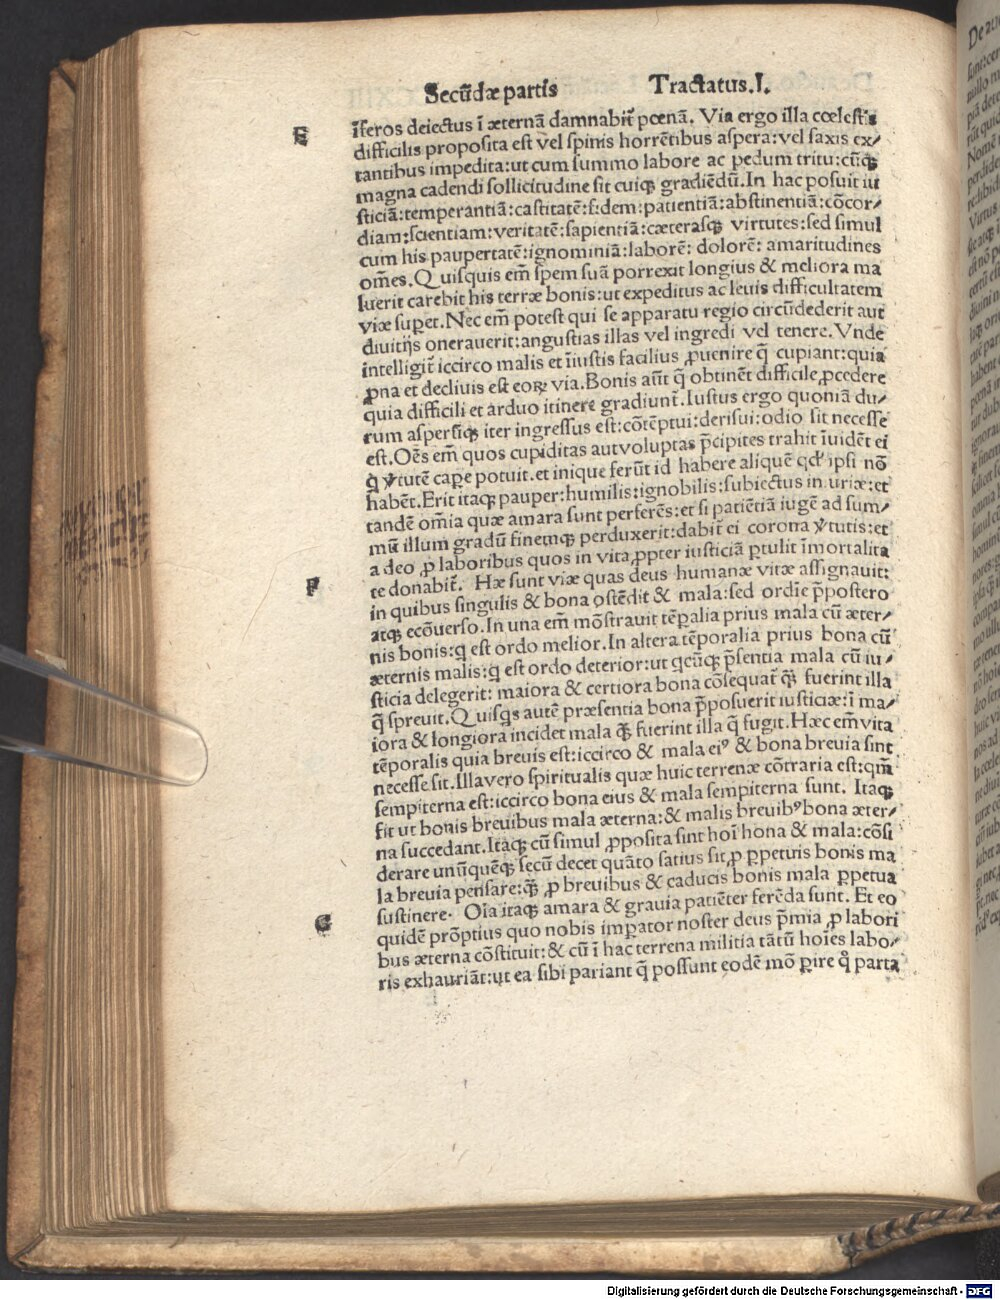 Secūdæ partis Tractatus.I.
E
īferos deiectus ī æternā damnabit̄ pœnā. Via ergo illa cœlestis
difficilis proposita est vel spinis horrētibus aspera: vel saxis ex⸗
tantibus impedita: ut cum summo labore ac pedum tritu: cūqꝫ
magna cadendi sollicitudine sit cuiqꝫ gradiēdū. In hac posuit iu
sticiā: temperantiā: castitatē: fidem: patientiā: abstinentiā: cōcor⸗
diam: scientiam: veritatē: sapientiā: cæterasqꝫ virtutes: sed simul
cum his paupertatē: ignominiā: laborē: dolorē: amaritudines
om̄es. Quisquis em̄ spem suā porrexit longius & meliora ma
luerit carebit his terræ bonis: ut expeditus ac leuis difficultatem
viæ supet. Nec em̄ potest qui se apparatu regio circūdederit aut
diuitijs onerauerit: angustias illas vel ingredi vel tenere. Vnde
intelligit̄ iccirco malis et īiustis facilius ꝓuenire q̄ cupiant: quia
ꝓna et decliuis est eoꝝ via. Bonis aūt q̄ obtinēt difficile ꝓcedere
quia difficili et arduo itinere gradiunt̄. Iustus ergo quoniā du⸗
rum asperūqꝫ iter ingressus est: cōtēptui: derisui: odio sit necesse
est. Oēs em̄ quos cupiditas aut voluptas p̄cipites trahit īuidēt ei
q̄ v̄tutē capere potuit. et inique ferūt id habere aliquē qd' ipsi nō
habēt. Erit itaqꝫ pauper: humilis: ignobilis: subiectus iniuriæ: et
tandē om̄ia quæ amara sunt perferēs: et si patiētiā iugē ad sum⸗
mū illum gradū finemqꝫ perduxerit: dabit̄ ei corona v̄tutis: et
a deo ꝓ laboribus quos in vita ꝓpter iusticiā ptulit īmortalita
F
te donabit̄. Hæ sunt viæ quas deus humanæ vitæ assignauit:
in quibus singulis & bona ostēdit & mala: sed ordīe p̄postero
atqꝫ ecōuerso. In una em̄ mōstrauit tēpalia prius mala cū æter⸗
nis bonis: q̄ est ordo melior. In altera tēporalia prius bona cū
æternis malis: q̄ est ordo deterior: ut qcūqꝫ p̄sentia mala cū iu⸗
sticia delegerit: maiora & certiora bona cōsequat̄ qꝫ̄ fuerint illa
q̄ spreuit. Quisq̄s autē præsentia bona p̄posuerit iusticiæ: ī ma⸗
iora & longiora incidet mala qꝫ̄ fuerint illa q̄ fugit. Hæc em̄ vita
tēporalis quia breuis est: iccirco & mala eiꝰ & bona breuia sint
necesse sit. Illa vero spiritualis quæ huic terrenæ cōtraria est: qm̄
sempiterna est: iccirco bona eius & mala sempiterna sunt. Itaqꝫ
fit ut bonis breuibus mala æterna: & malis breuibꝰ bona æter⸗
na succedant. Itaqꝫ cū simul ꝓposita sint hoī bona & mala: cōsi
derare unūquēqꝫ secū decet quāto satius sit ꝓ ꝑpetuis bonis ma
la breuia pensare: qꝫ̄ ꝓ breuibus & caducis bonis mala ꝑpetua
G
sustinere. Oīa itaqꝫ amara & grauia patiēter ferēda sunt. Et eo
quidē prōptius quo nobis impator noster deus p̄mia ꝓ labori
bus æterna cōstituit: & cū ī hac terrena militia tātū hoīes labo⸗
ris exhauriāt: ut ea sibi pariant q̄ possunt eodē mō ꝑire q̊ parta
Digitalisierung gefördert durch die Deutsche Forschungsgemeinschaft - DFG